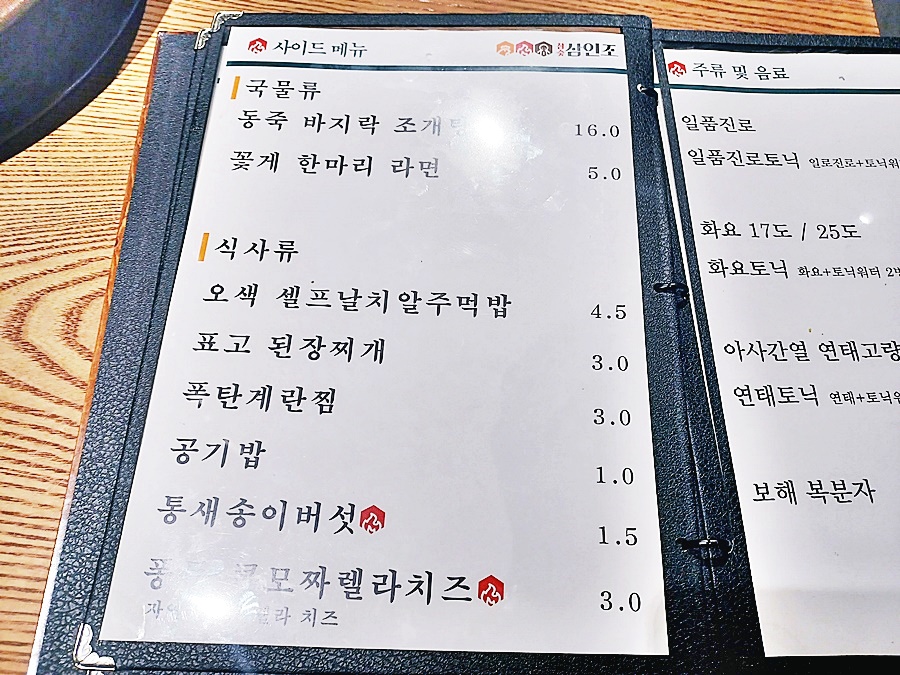 사이드 메뉴
심인조
국물류
동죽 바지락 조개탕 16.0
꽃게 한마리 라면 5.0
식사류
오색 셀프날치알주먹밥 4.5
표고 된장찌개 3.0
폭탄계란찜 3.0
공기밥 1.0
통새송이버섯 1.5
모짜렐라치즈 3.0
치즈
주류 및 음료
일품진로
일품진로토닉 일료진로+토닉워
화요 17도 / 25도
화요토닉 화요+토닉워터 2병
아사간열 연태고량
연태토닉 연태+토닉워
보해 복분자